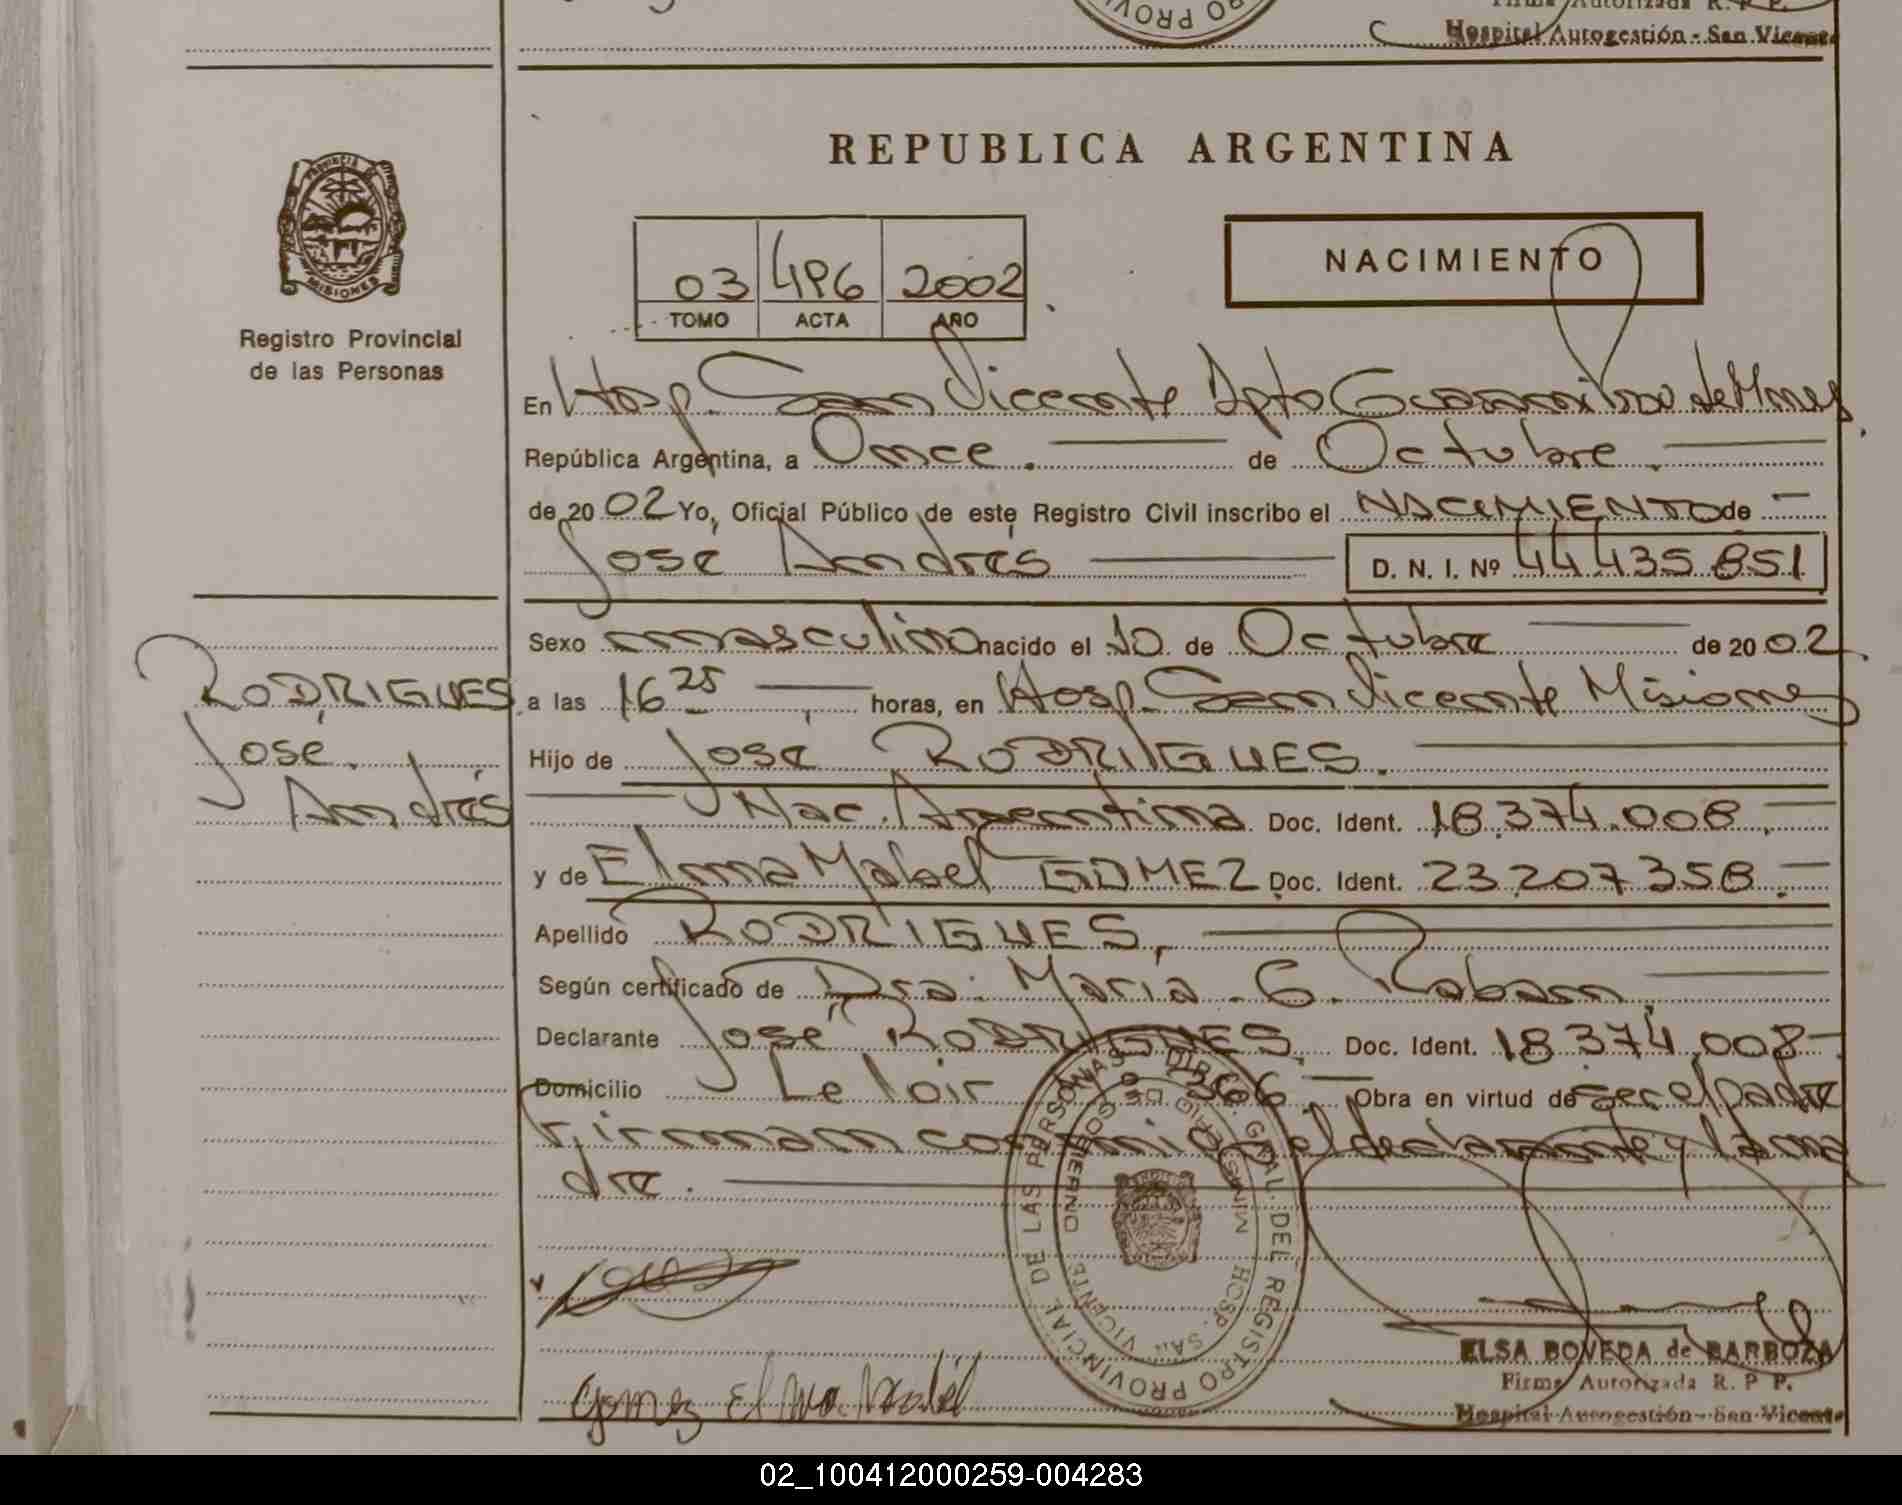 Firma Autorizada R. P. P.
Hospital Autogestión - San Vicente
REPUBLICA ARGENTINA
PROVINCIA DE
MISIONES
Registro Provincial
de las Personas
03 496 2002
TOMO ACTA AÑO
NACIMIENTO
En Hosp. San Vicente Dpto Guaraní Prov de Mnes.
República Argentina, a Once. de Octubre.
de 2002 Yo, Oficial Público de este Registro Civil inscribo el NACIMIENTO de
José Andrés D. N. I. Nº 44 435 851
Sexo masculino nacido el 10 de Octubre de 2002.
RODRIGUES
José
Andrés
a las 16 25 horas, en Hosp. San Vicente Misiones
Hijo de José RODRIGUES.
Nac. Argentina Doc. Ident. 18.374.008.
y de Elma Mabel GOMEZ Doc. Ident. 23 207 358.
Apellido RODRIGUES.
Según certificado de Dra. María G. Raban.
Declarante José RODRIGUES. Doc. Ident. 18 374.008
Domicilio Leloir Obra en virtud de ser el padre
Firman conmigo el declarante y la ma
dre.
DIREC. GRAL. DEL REGISTRO PROVINCIAL DE LAS PERSONAS
HOSP. SAN VICENTE
Gomez Elma Mabel
ELSA BOVEDA de BARBOZA
Firma Autorizada R. P P.
Hospital Autogestión - San Vicente
02_100412000259-004283